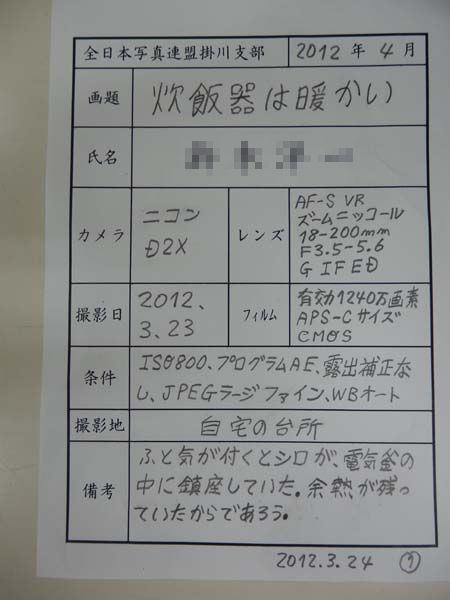 全日本写真連盟掛川支部 2012 年 4 月
画題 炊飯器は暖かい
氏名
カメラ ニコン D2X
レンズ AF-S VR
ズームニッコール
18-200mm
F3.5-5.6
G IF ED
撮影日 2012、
3.23
フィルム 有効1240万画素
APS-Cサイズ
CMOS
条件 ISO800、プログラムAE、露出補正な
し、JPEGラージファイン、WBオート
撮影地 自宅の台所
備考 ふと気が付くとシロが、電気釜の
中に鎮座していた。余熱が残っ
ていたからであろう。
2012.3.24